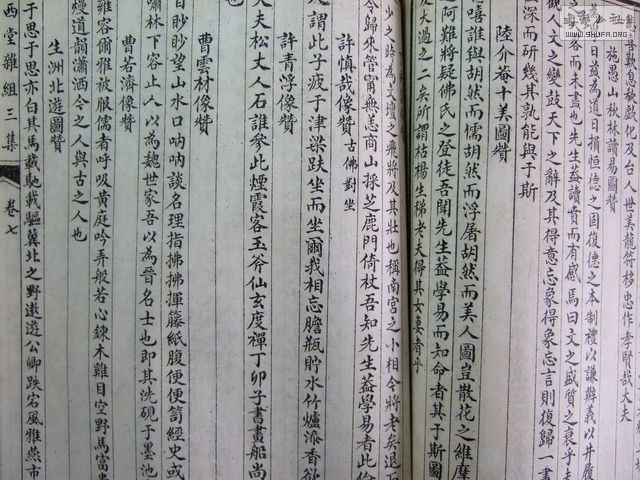 施愚山秋林讀易圖贊
日益為道日損恒德之固復德之本制禮以謙辨義以井履
客而未盡也先生益讀賁而有感焉曰文之盛質之衰乎
觀人文之變鼓天下之辭及其得意忘象得象忘言則復歸一畫
深而研幾其孰能與于斯
陸介菴十美圖贊
嘻誰與胡然而儒胡然而浮屠胡然而美人圖豈散花之維摩
阿難將疑佛氏之登徒吾聞先生益學易而知命者其于斯圖
及大過之二矣所謂枯楊生稊老夫得其女妻者乎
少之時為文壇之飛將及其壯也稱南宮之小相今將老矣退而
今歸來管甯無恙商山採芝鹿門倚杖吾知先生益學易者此
許慎哉像贊 古佛對坐
謂此子疲于津梁趺坐而坐爾我相忘膽瓶貯水竹爐添香欲
許青浮像贊
大夫松丈人石誰參此煙霞客玉斧仙玄度禪丁卯子書畫船尚
曹雲材像贊
目眇眇望山水口吶吶談名理指拂拂揮籐紙腹便便笥經史或
嘯林下容止人以為魏世家吾以為晉名士也即其洗硯于墨池
曹若濟像贊
雍容爾雅被服儒者呼吸黃庭吟弄般若心鍊木雞目空野馬富貴
熳道韻瀟洒今之人與古之人也
生洲北遊圖贊
于思于思亦白其馬載馳載驅冀北之野遨遊公卿跌宕風雅燕市
西堂雜組三集 卷七